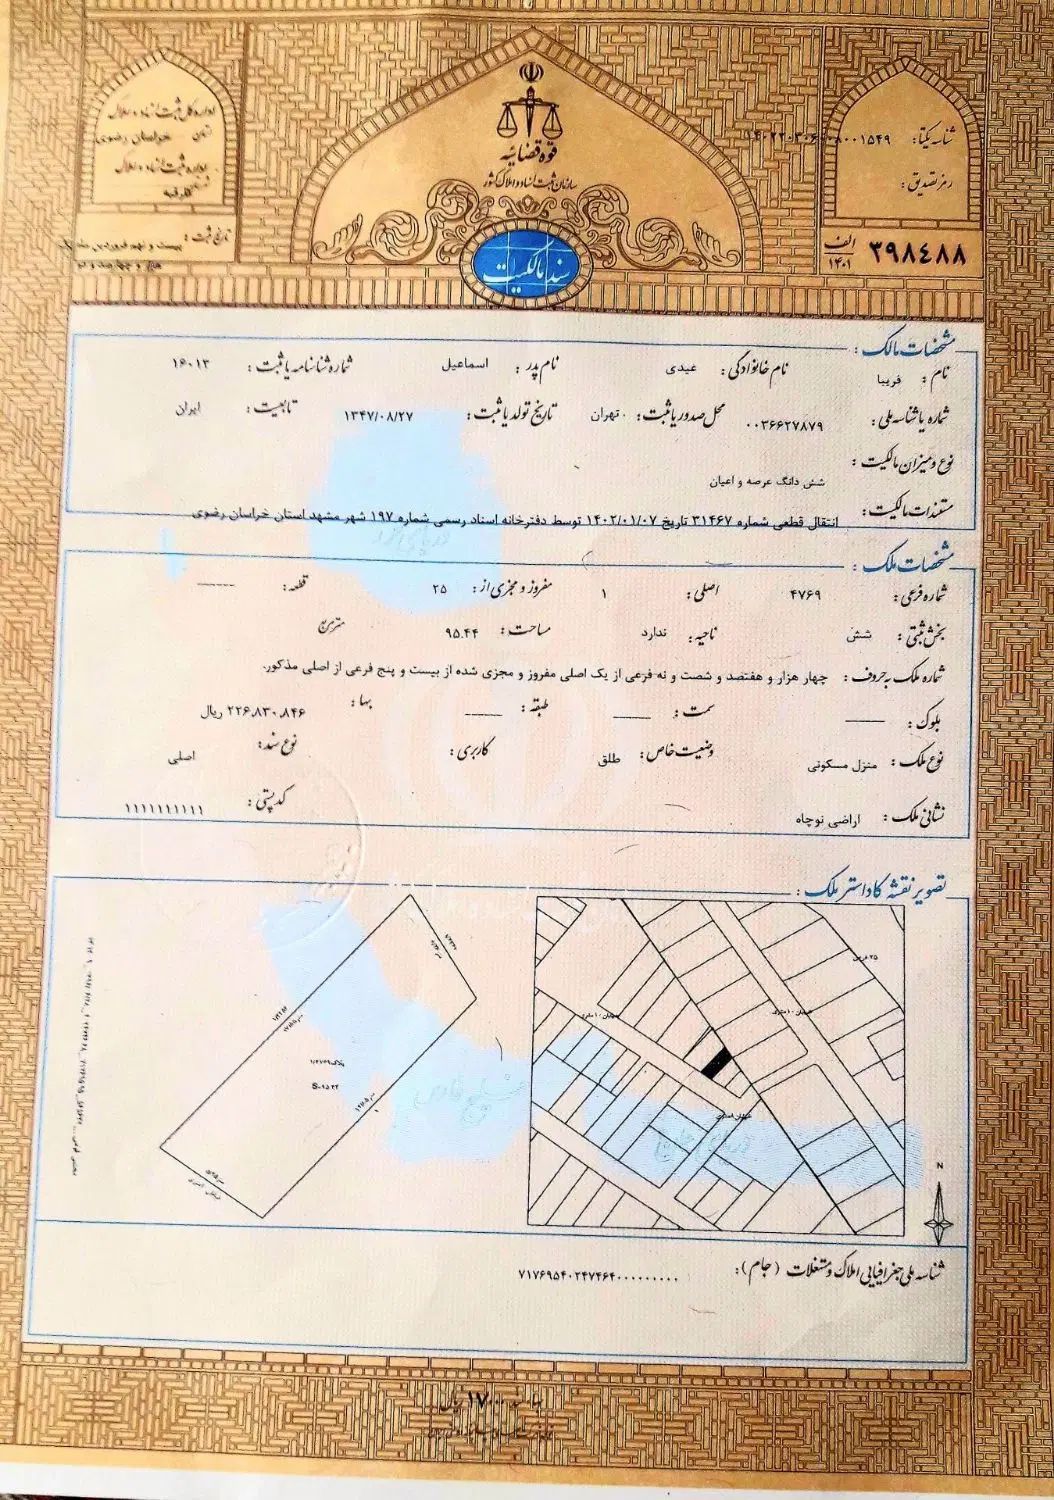 قوه قضائیه
سازمان ثبت اسناد و املاک کشور
سند مالکیت
اداره کل ثبت اسناد و املاک
استان خراسان رضوی
اداره ثبت اسناد و املاک
کلرقیه
تاریخ ثبت: بیست و نهم فروردین
شناسه یکتا:
رمز تصدیق:
الف ۱۴۰۱ ۳۹۸۴۸۸
مشخصات مالک:
نام: فریبا نام خانوادگی: عیدی نام پدر: اسماعیل شماره شناسنامه یا ثبت: ۱۶۰۱۳
شماره یا شناسه ملی: ۰۰۳۶۶۲۷۸۷۹ محل صدور یا ثبت: تهران تاریخ تولد یا ثبت: ۱۳۴۷/۰۸/۲۷ تابعیت: ایران
نوع و میزان مالکیت: شش دانگ عرصه و اعیان
مستندات مالکیت: انتقال قطعی شماره ۳۱۴۶۷ تاریخ ۱۴۰۲/۰۱/۰۷ توسط دفترخانه اسناد رسمی شماره ۱۹۷ شهر مشهد استان خراسان رضوی
مشخصات ملک:
شماره فرعی: ۴۷۶۹ اصلی: ۱ مفروز و مجزی از: ۲۵ قطعه: ——
بخش ثبتی: شش ناحیه: ندارد مساحت: ۹۵.۴۴ مترمربع
شماره ملک به حروف: چهار هزار و هفتصد و شصت و نه فرعی از یک اصلی مفروز و مجزی شده از بیست و پنج فرعی از اصلی مذکور.
بلوک: —— سمت: —— طبقه: —— بها: ۲۲۶,۸۳۰,۸۴۶ ریال
نوع ملک: منزل مسکونی وضعیت خاص: طلق کاربری: نوع سند: اصلی
نشانی ملک: اراضی نوچاه کد پستی: ۱۱۱۱۱۱۱۱۱۱
تصویر نقشه کاداستر ملک:
۲۵ فرعی
خیابان ۱۰ متری
خیابان ۱۰ متری
N
شناسه ملی جغرافیایی املاک و مستغلات (جام): ۷۱۷۶۹۵۴۰۲۴۷۴۶۴۰۰۰۰۰۰۰۰۰
بهاء سند ۱۷۰۰۰۰ ریال